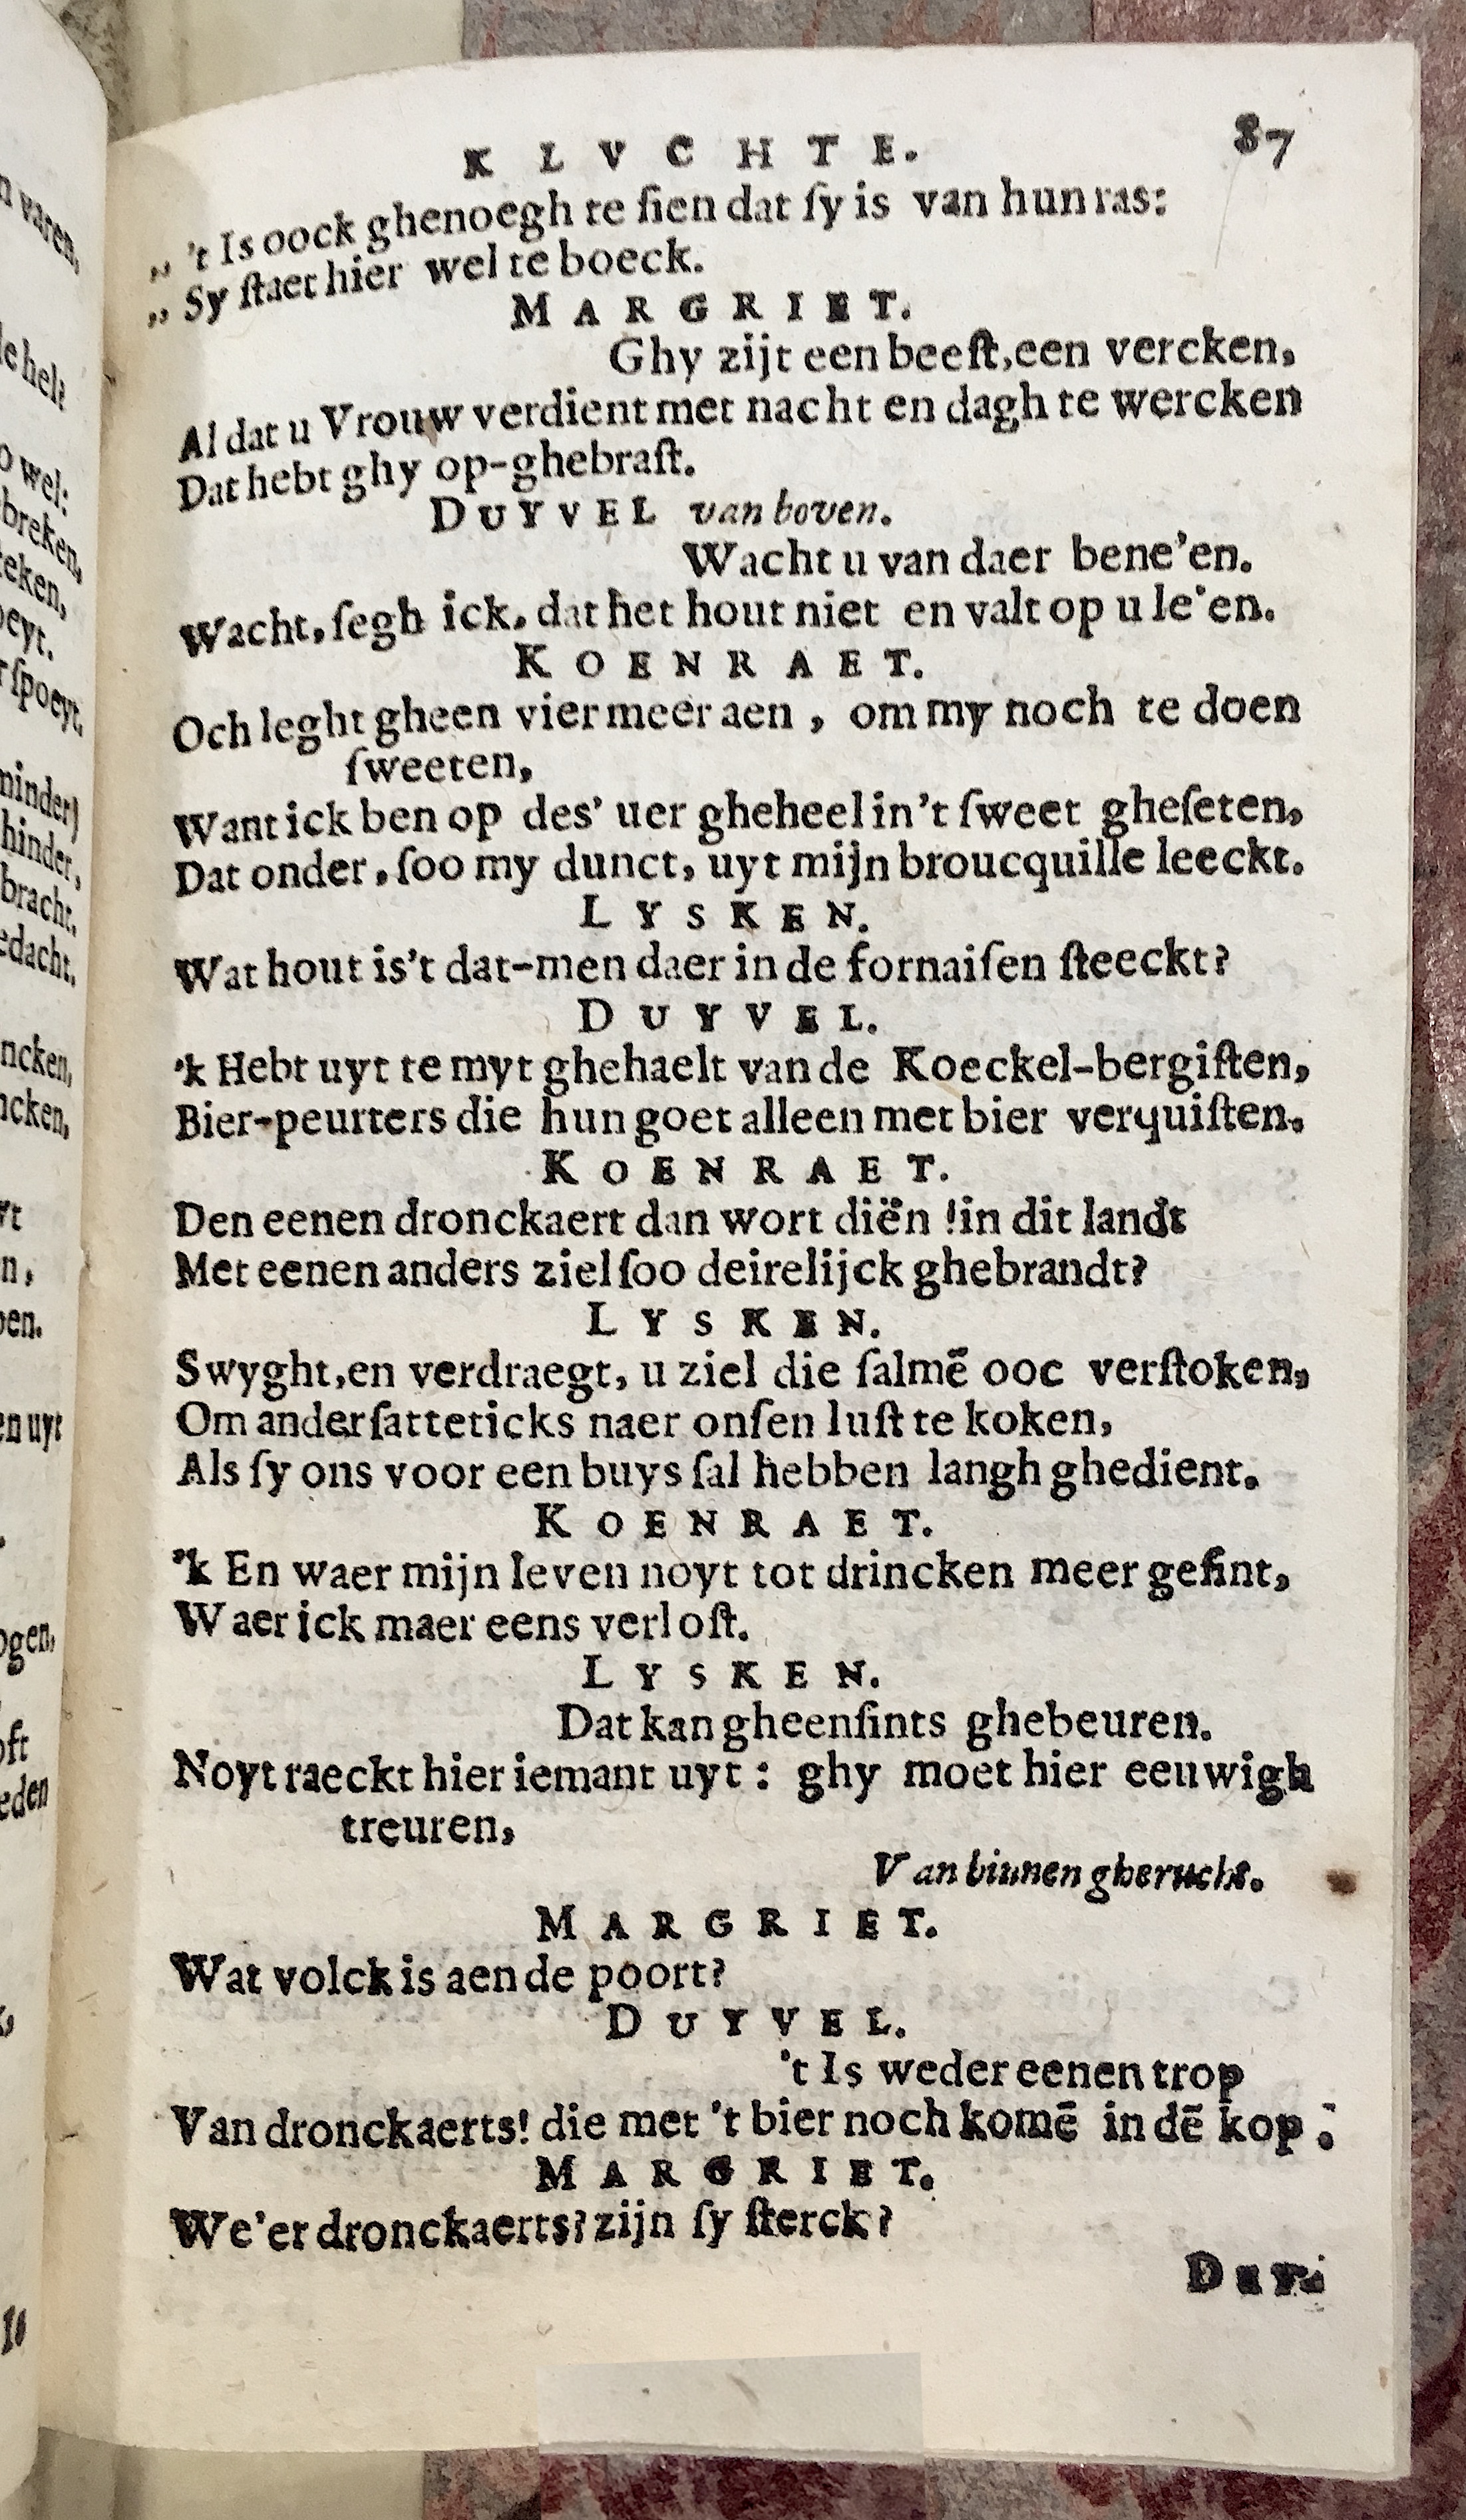 KLVCHTE. 87
„ 't Is oock ghenoegh te sien dat sy is van hun ras:
„ Sy staet hier wel te boeck.
MARGRIET.
Ghy zijt een beest, een vercken,
Al dat u Vrouw verdient met nacht en dagh te wercken
Dat hebt ghy op-ghebrast.
DUYVEL van boven.
Wacht u van daer bene'en.
Wacht, segh ick, dat het hout niet en valt op u le'en.
KOENRAET.
Och leght gheen vier meer aen, om my noch te doen
sweeten,
Want ick ben op des' uer gheheel in't sweet gheseten,
Dat onder, soo my dunct, uyt mijn broucquille leeckt.
LYSKEN.
Wat hout is't dat-men daer in de fornaisen steeckt?
DUYVEL.
'k Hebt uyt te myt ghehaelt van de Koeckel-bergisten,
Bier-peurters die hun goet alleen met bier verquisten.
KOENRAET.
Den eenen dronckaert dan wort diën !in dit landt
Met eenen anders ziel soo deirelijck ghebrandt?
LYSKEN.
Swyght, en verdraegt, u ziel die salmē ooc verstoken,
Om ander satteticks naer onsen lust te koken,
Als sy ons voor een buys sal hebben langh ghedient.
KOENRAET.
'k En waer mijn leven noyt tot drincken meer gesint,
Waer ick maer eens verlost.
LYSKEN.
Dat kan gheensints ghebeuren.
Noyt raeckt hier iemant uyt: ghy moet hier eeuwigh
treuren,
Van binnen gherucht.
MARGRIET.
Wat volck is aen de poort?
DUYVEL.
't Is weder eenen trop
Van dronckaerts! die met 't bier noch komē in dē kop.
MARGRIET.
We'er dronckaerts? zijn sy sterck?
DUY-